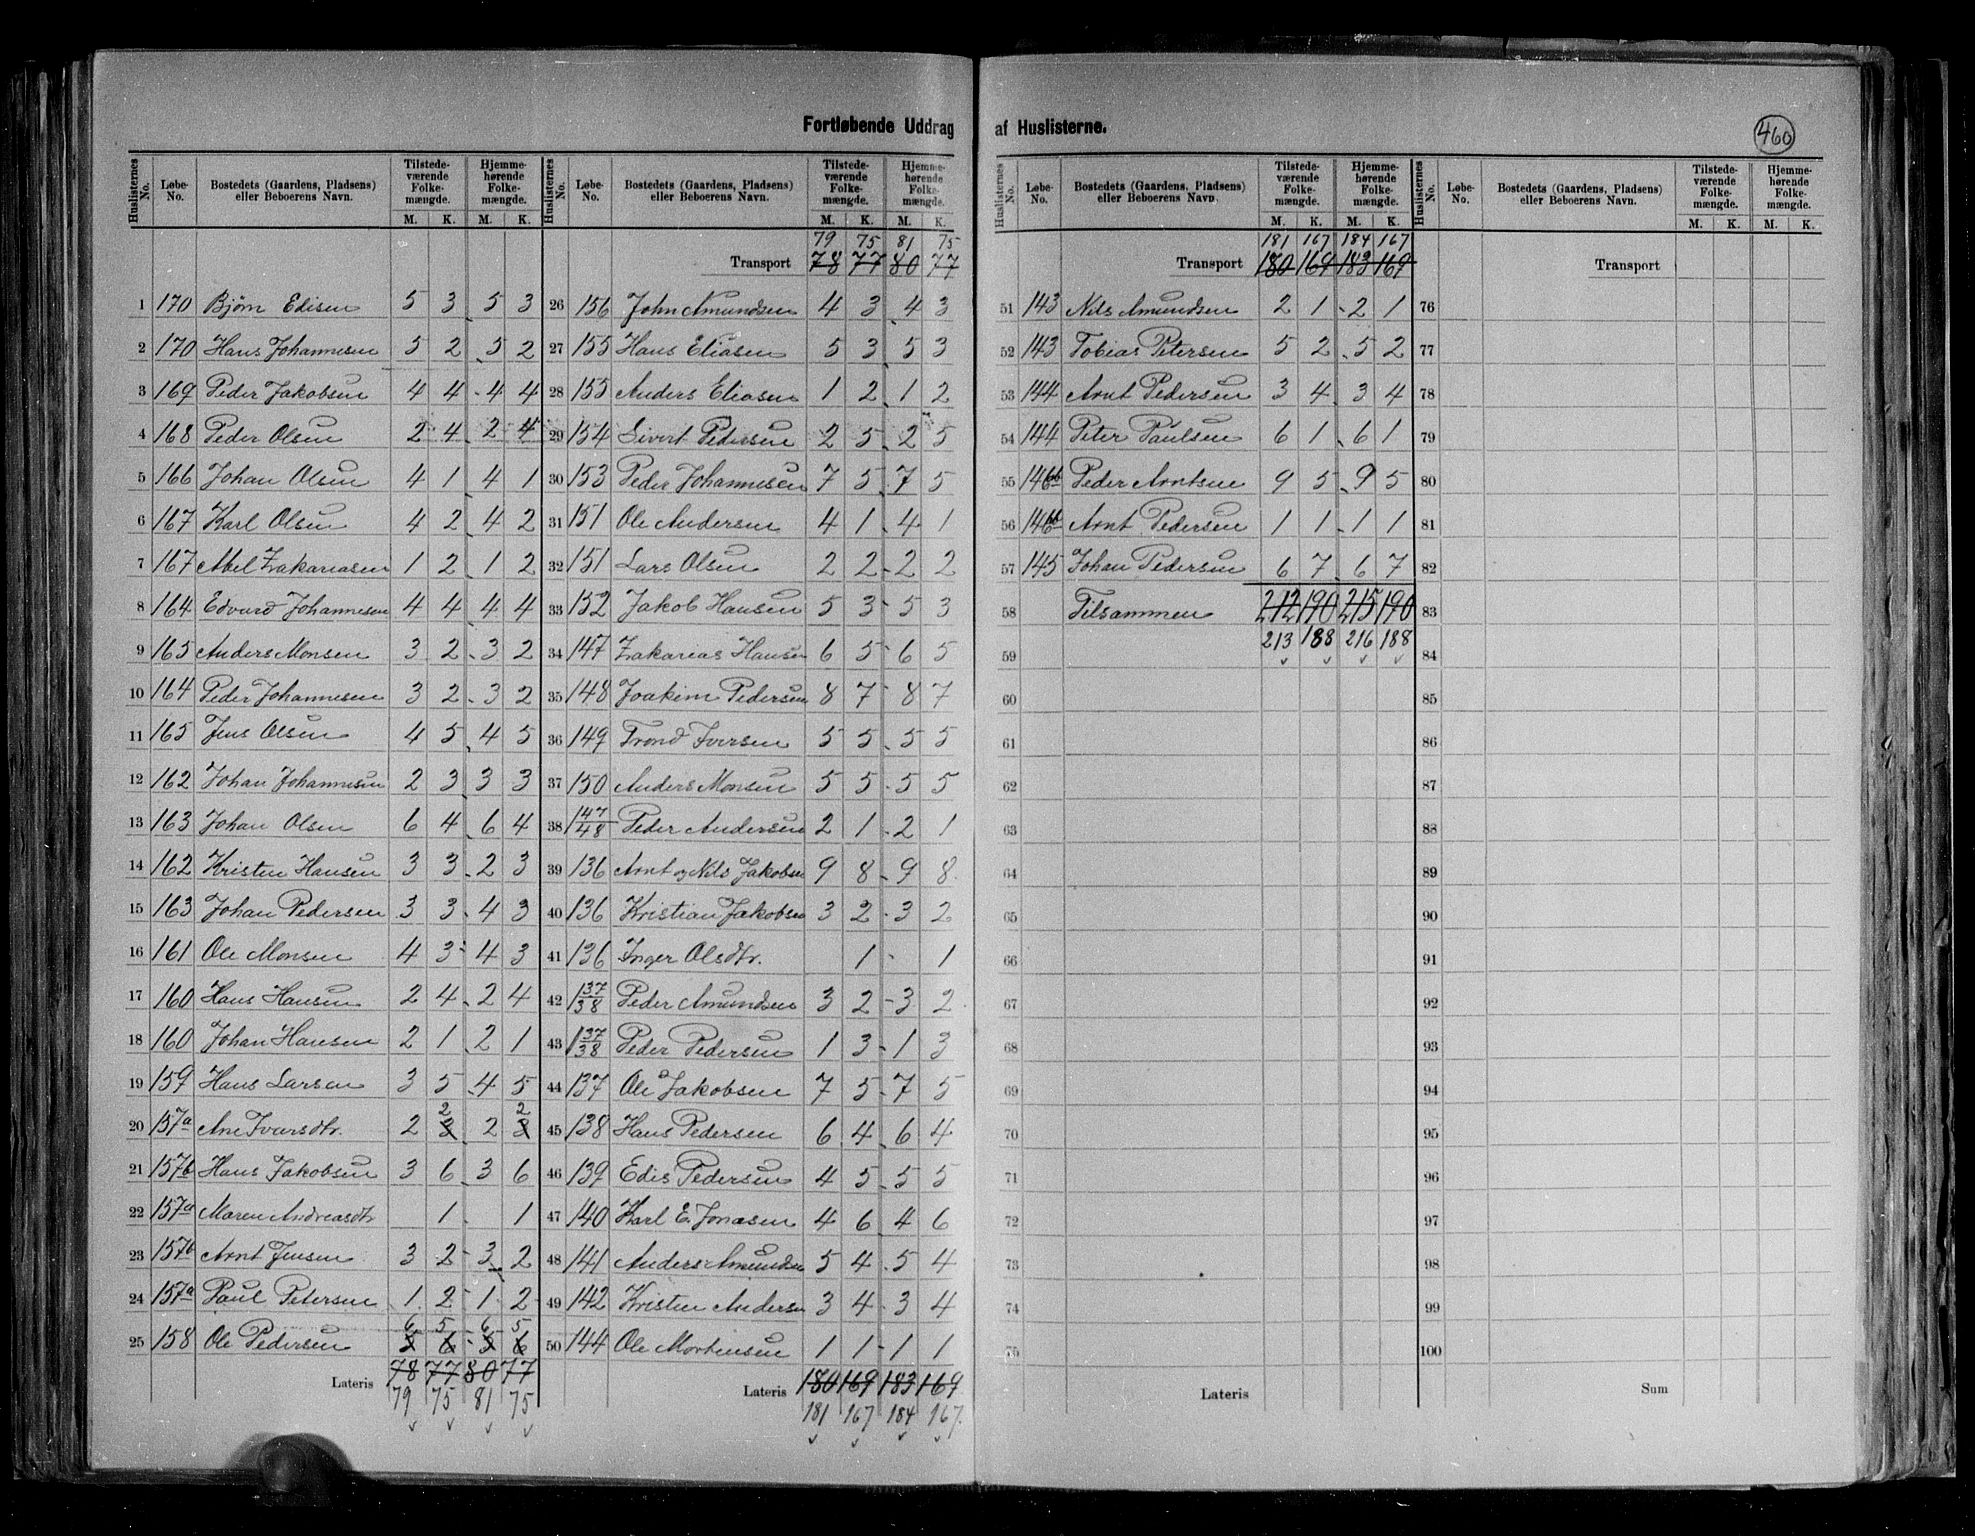 Fortløbende Uddrag af Huslisterne.
460
Huslisternes No. Løbe-No. Bostedets (Gaardens, Pladsens) eller Beboerens Navn. Tilstedeværende Folkemængde. M. K. Hjemmehørende Folkemængde. M. K.
1 170 Bjørn Edisen 5 3 5 3
2 170 Hans Johannesen 5 2 5 2
3 169 Peder Jakobsen 4 4 4 4
4 168 Peder Olsen 2 4 2 4
5 166 Johan Olsen 4 1 4 1
6 167 Karl Olsen 4 2 4 2
7 167 Abel Zakariasen 1 2 1 2
8 164 Edvard Johannesen 4 4 4 4
9 165 Anders Monsen 3 2 3 2
10 164 Peder Johannesen 3 2 3 2
11 165 Jens Olsen 4 5 4 5
12 162 Johan Johannesen 2 3 3 3
13 163 Johan Olsen 6 4 6 4
14 162 Kristen Hansen 3 3 2 3
15 163 Johan Pedersen 3 3 4 3
16 161 Ole Monsen 4 3 4 3
17 160 Hans Hansen 2 4 2 4
18 160 Johan Hansen 2 1 2 1
19 159 Hans Larsen 3 5 4 5
2 2
20 157a Ane Ivarsdtr. 2 3 2 3
21 157b Hans Jakobsen 3 6 3 6
22 157a Maren Andreasdtr 1 1
23 157b Arnt Jensen 3 2 3 2
24 157a Paul Petersen 1 2 1 2
6 5 6 5
25 158 Ole Pedersen 5 6 5 6
78 77 80 77
Lateris
79 75 81 75
Huslisternes No. Løbe-No. Bostedets (Gaardens, Pladsens) eller Beboerens Navn. Tilstedeværende Folkemængde. M. K. Hjemmehørende Folkemængde. M. K.
79 75 81 75
Transport 78 77 80 77
26 156 John Amundsen 4 3 4 3
27 155 Hans Eliasen 5 3 5 3
28 155 Anders Eliasen 1 2 1 2
29 154 Sivert Pedersen 2 5 2 5
30 153 Peder Johannesen 7 5 7 5
31 151 Ole Andersen 4 1 4 1
32 151 Lars Olsen 2 2 2 2
33 152 Jakob Hansen 5 3 5 3
34 147 Zakarias Hansen 6 5 6 5
35 148 Joakim Pedersen 8 7 8 7
36 149 Trond Iversen 5 5 5 5
37 150 Anders Monsen 5 5 5 5
38 147/48 Peder Andersen 2 1 2 1
39 136 Arnt og Nils Jakobsen 9 8 9 8
40 136 Kristian Jakobsen 3 2 3 2
41 136 Inger Olsdtr. 1 1
42 137/38 Peder Amundsen 3 2 3 2
43 137/38 Peder Pedersen 1 3 1 3
44 137 Ole Jakobsen 7 5 7 5
45 138 Hans Pedersen 6 4 6 4
46 139 Edis Pedersen 4 5 5 5
47 140 Karl E. Jonasen 4 6 4 6
48 141 Anders Amundsen 5 4 5 4
49 142 Kristen Andersen 3 4 3 4
50 144 Ole Mortensen 1 1 1 1
Lateris 180 169 183 169
181 167 184 167.
Huslisternes No. Løbe-No. Bostedets (Gaardens, Pladsens) eller Beboerens Navn. Tilstedeværende Folkemængde. M. K. Hjemmehørende Folkemængde. M. K.
181 167 184 167
Transport 180 169 183 169
51 143 Nils Amundsen 2 1 2 1
52 143 Tobias Petersen 5 2 5 2
53 144 Arnt Pedersen 3 4 3 4
54 144 Peter Paulsen 6 1 6 1
55 146 Peder Arntsen 9 5 9 5
56 146 Arnt Pedersen 1 1 1 1
57 145 Johan Pedersen 6 7 6 7
58 Tilsammen 212 190 215 190
213 188 216 188
59
60
61
62
63
64
65
66
67
68
69
70
71
72
73
74
75
Lateris
Huslisternes No. Løbe-No. Bostedets (Gaardens, Pladsens) eller Beboerens Navn. Tilstedeværende Folkemængde. M. K. Hjemmehørende Folkemængde. M. K.
Transport
76
77
78
79
80
81
82
83
84
85
86
87
88
89
90
91
92
93
94
95
96
97
98
99
100
Sum